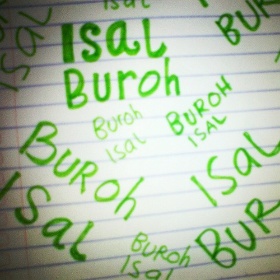 Isal
Isal
BUR
Isal
Buroh
Buroh
Isal
BUROH
ISAL
BUROh
Isal
ISAL
BUR
Buroh
Isal